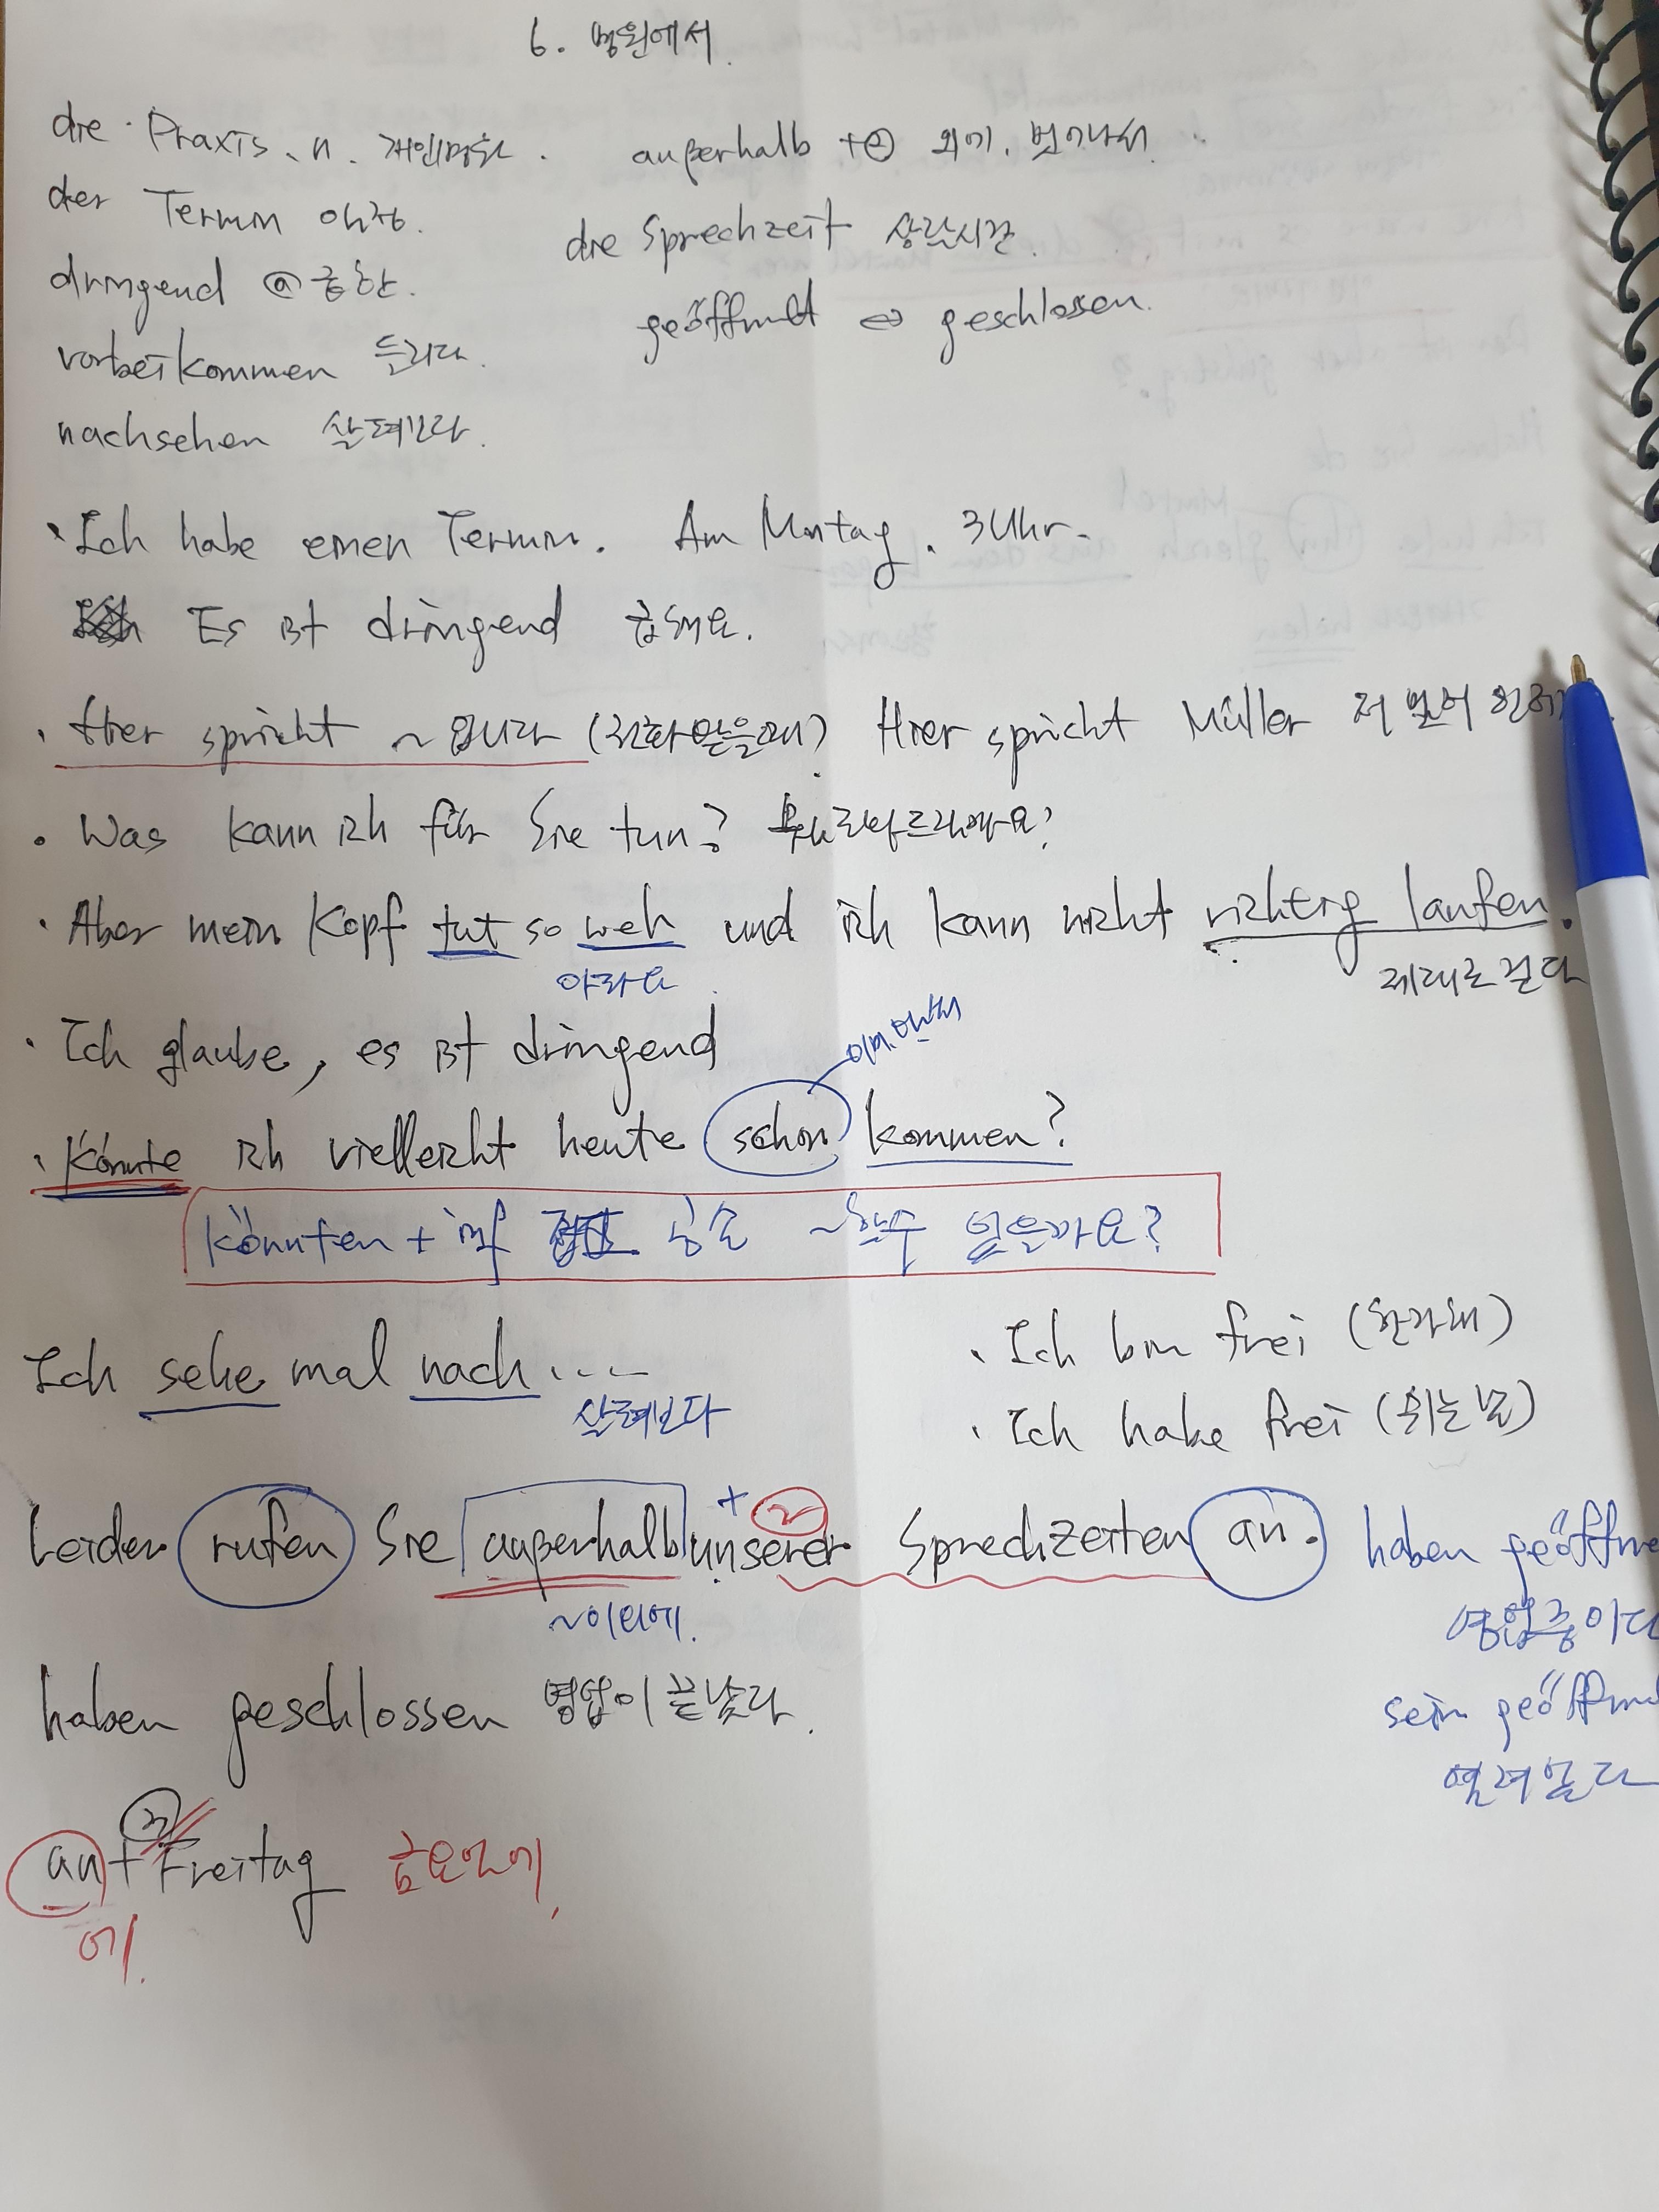 6. 병원에서.
die Praxis, n. 개인병원.
der Termin 예약.
dringend ⓐ 급한.
vorbeikommen 들리다.
nachsehen 살펴보다.
außerhalb +② 외에, 벗어나서.
die Sprechzeit 상담시간.
geöffnet ⇔ geschlossen.
· Ich habe einen Termin. Am Montag. 3 Uhr.
Es ist dringend 급해요.
· Hier spricht ~입니다 (전화받을때) Hier spricht Müller 저 뮐러
· Was kann ich für Sie tun? 도와드릴까요?
· Aber mein Kopf tut so weh und ich kann nicht richtig laufen.
아파요. 제대로 걷다
· Ich glaube, es ist dringend
· Könnte ich vielleicht heute schon kommen?
könnten + inf 공손 ~할수 있을까요?
Ich sehe mal nach....
살펴보다
· Ich bin frei (한가해)
· Ich habe frei (쉬는날)
Leider rufen Sie außerhalb + ② unserer Sprechzeiten an.
~이외에.
haben geöffne
영업중이다
haben geschlossen 영업이 끝났다.
sein geöffne
열려있다
an + ③ Freitag 금요일에.
에.